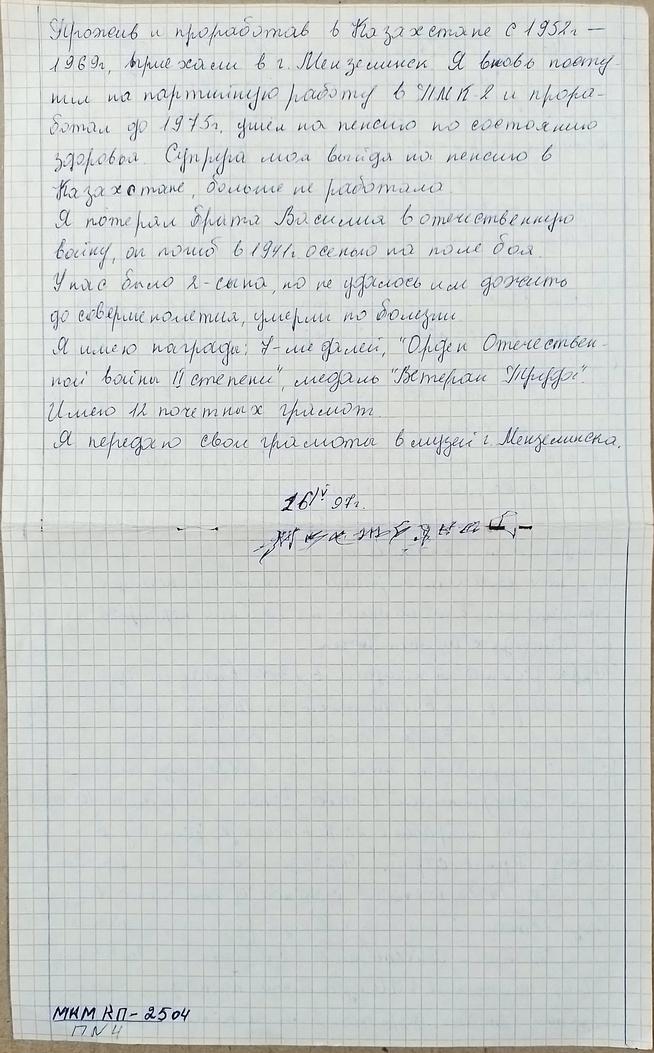 Прожив и проработав в Казахстане с 1952г –
1969г, приехали в г. Мензелинск Я вновь посту-
пил на партийную работу в ПМК-2 и прора-
ботал до 1975г, ушел на пенсию по состоянию
здоровья. Супруга моя выйдя на пенсию в
Казахстане, больше не работала.
Я потерял брата Василия в отечественную
войну, он погиб в 1941г. осенью на поле боя.
У нас было 2-сына, но не удалось им дожить
до совершенолетия, умерли по болезни.
Я имею награды: 7-медалей, "Орден Отечествен-
ной войны II степени", медаль "Ветеран Труда".
Имею 12 почетных грамот.
Я передаю свои грамоты в музей г. Мензелинска.
97г.
МКМ КП-2504
П№4